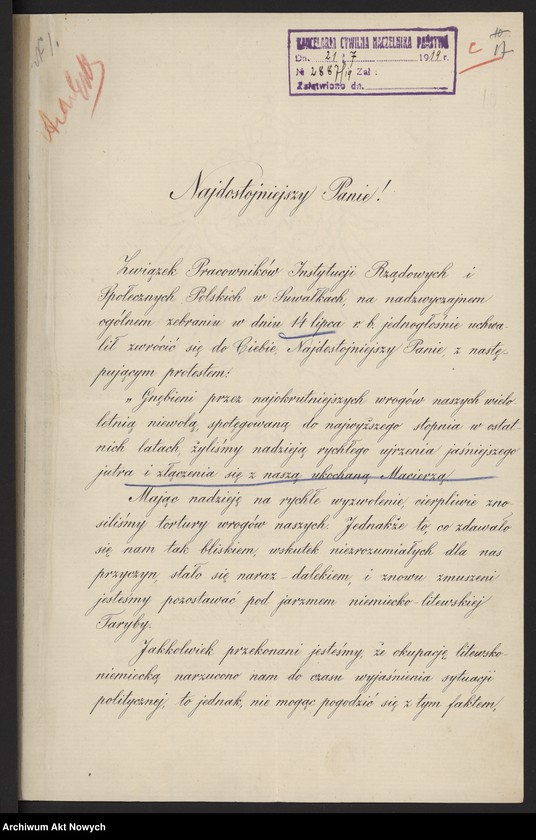 KANCELARJA CYWILNA NACZELNIKA PAŃSTWA
Dn. 21 7 1919 r.
№ 2887/19 Zał:
Załatwiono dn.
c
17
Najdostojniejszy Panie!
Związek Pracowników Instytucji Rządowych i
Społecznych Polskich w Suwałkach, na nadzwyczajnem
ogólnem zebraniu w dniu 14 lipca r. b. jednogłośnie uchwa-
lił zwrócić się do Ciebie, Najdostojniejszy Panie, z nastę-
pującym protestem:
„Gnębieni przez najokrutniejszych wrogów naszych wielo
letnią niewolą, spotęgowaną do najwyższego stopnia w ostat-
nich latach, żyliśmy nadzieją rychłego ujrzenia jaśniejszego
jutra i złączenia się z naszą ukochaną Macierzą.
Mając nadzieję na rychłe wyzwolenie, cierpliwie zno-
siliśmy tortury wrogów naszych. Jednakże to, co zdawało
się nam tak bliskiem, wskutek niezrozumiałych dla nas
przyczyn, stało się naraz dalekiem, i znowu zmuszeni
jesteśmy pozostawać pod jarzmem niemiecko-litewskiej
Taryby.
Jakkolwiek przekonani jesteśmy, że okupację litewsko-
niemiecką narzucono nam do czasu wyjaśnienia sytuacji
politycznej, to jednak, nie mogąc pogodzić się z tym faktem,
Archiwum Akt Nowych